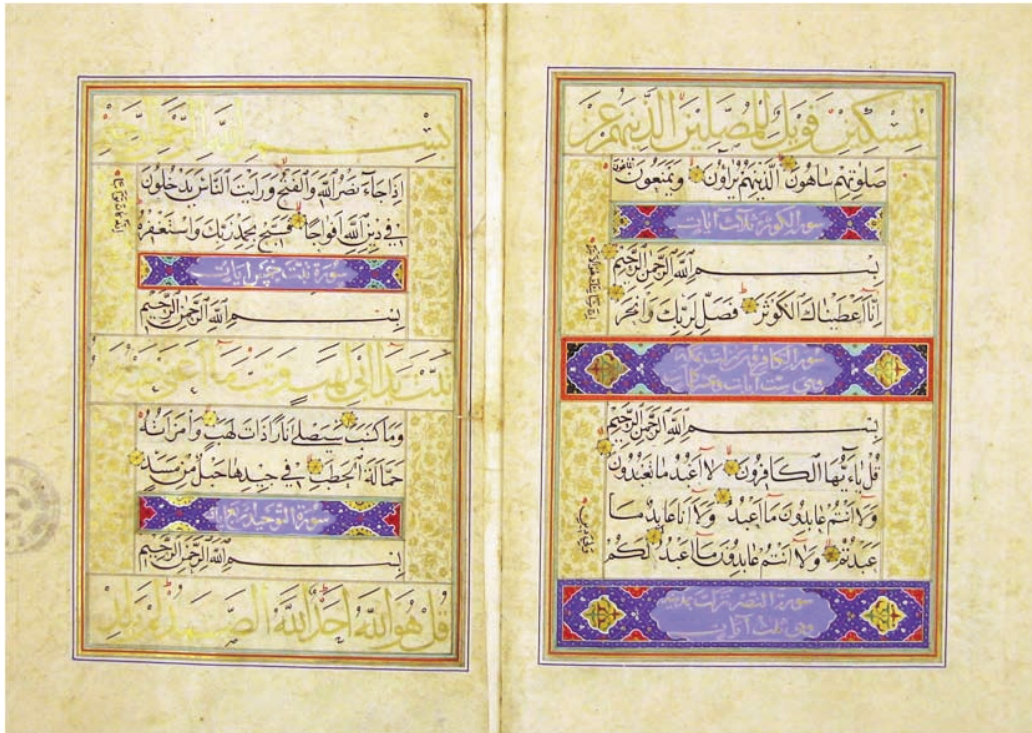 المسكين فويل للمصلين الذينهم عن
صلوتهم ساهون الذينهم يراؤن ويمنعون
الماعون
سورة الكوثر ثلاث آيات
بسم الله الرحمن الرحيم
انا اعطيناك الكوثر فصل لربك وانحر
ان شانئك هو الابتر
سورة الكافرون نزلت بمكة
وهي ست آيات
بسم الله الرحمن الرحيم
قل ياءيها الكافرون لا اعبد ما تعبدون
ولا انتم عابدون ما اعبد ولا انا عابد ما
عبدتم ولا انتم عابدون ما اعبد لكم
دينكم ولي دين
سورة النصر نزلت
وهي ثلث آيات
بسم الله الرحمن الرحيم
اذا جاء نصر الله والفتح ورايت الناس يدخلون
في دين الله افواجا فسبح بحمد ربك واستغفره
انه كان توابا
سورة تبت خمس ايات
بسم الله الرحمن الرحيم
تبت يدا ابي لهب وتب ما اغنى عنه ماله
وما كسب سيصلى نارا ذات لهب وامراته
حمالة الحطب في جيدها حبل من مسد
سورة التوحيد اربع آيات
بسم الله الرحمن الرحيم
قل هو الله احد الله الصمد لم يلد